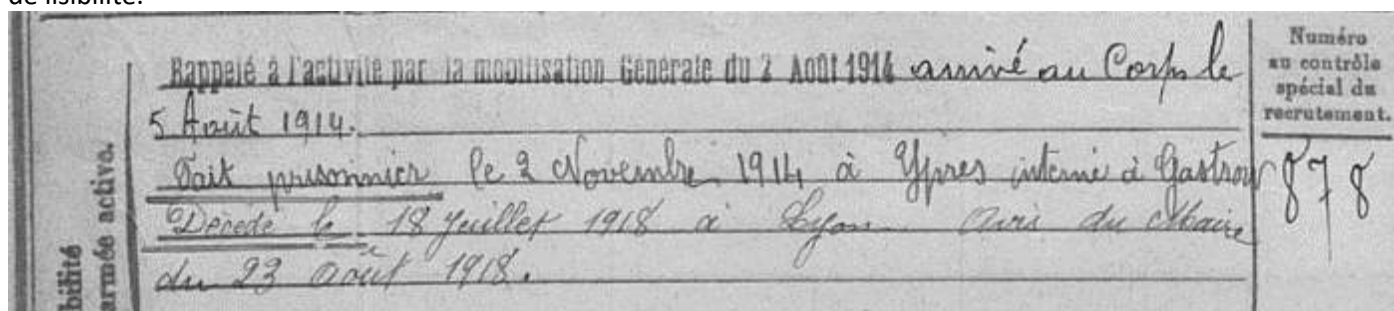 de lisibilité.
Rappelé à l'activité par la mobilisation Générale du 2 Août 1914 arrivé au Corps le
5 Août 1914.
Fait prisonnier le 2 Novembre 1914 à Ypres interné à Gastrow
Décédé le 18 Juillet 1918 à Lyon Avis du Maire
du 23 Août 1918.
Numéro
au contrôle
spécial du
recrutement.
878
bilité
armée active.